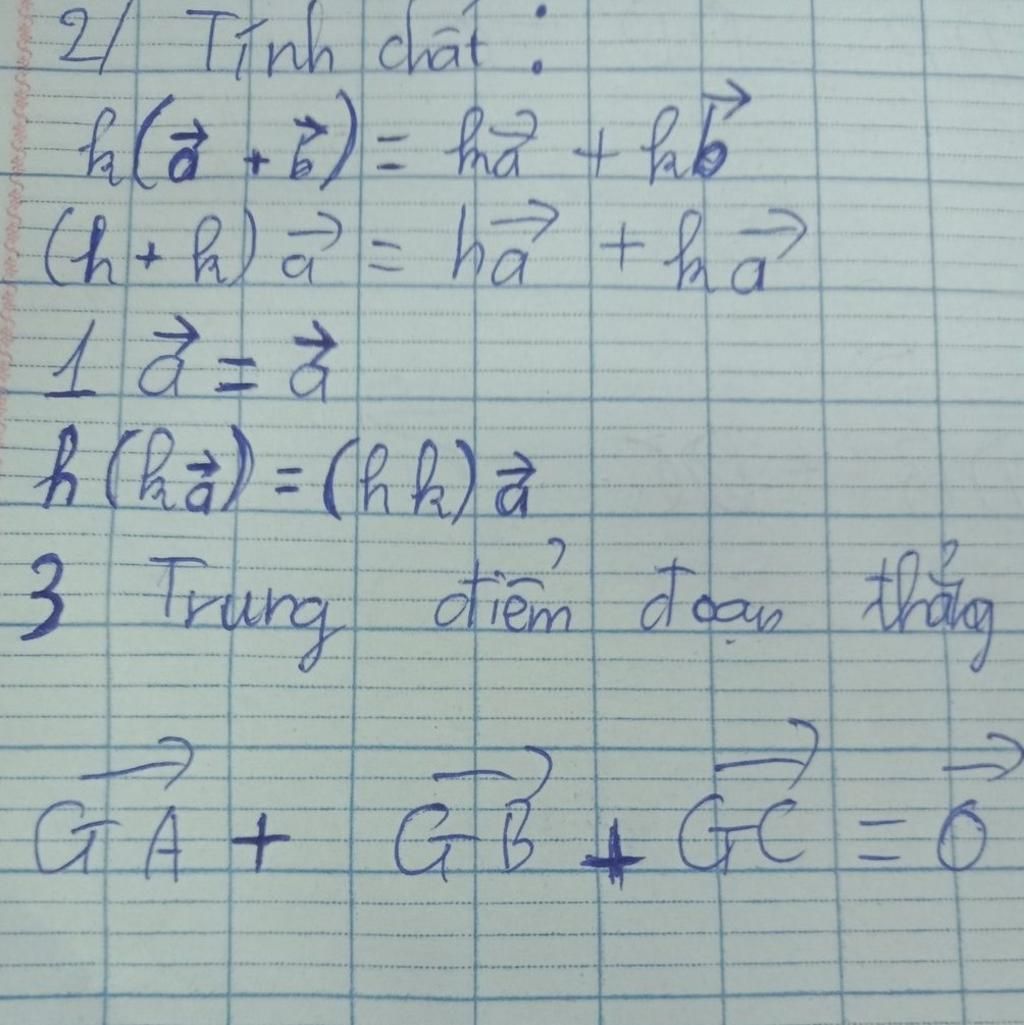 2/ Tính chất :
k(a⃗ + b⃗) = ka⃗ + kb⃗
(h + k) a⃗ = ha⃗ + ka⃗
1 a⃗ = a⃗
h (ka⃗) = (h k) a⃗
3 Trung điểm đoạn thẳng
GA⃗ + GB⃗ + GC⃗ = 0⃗